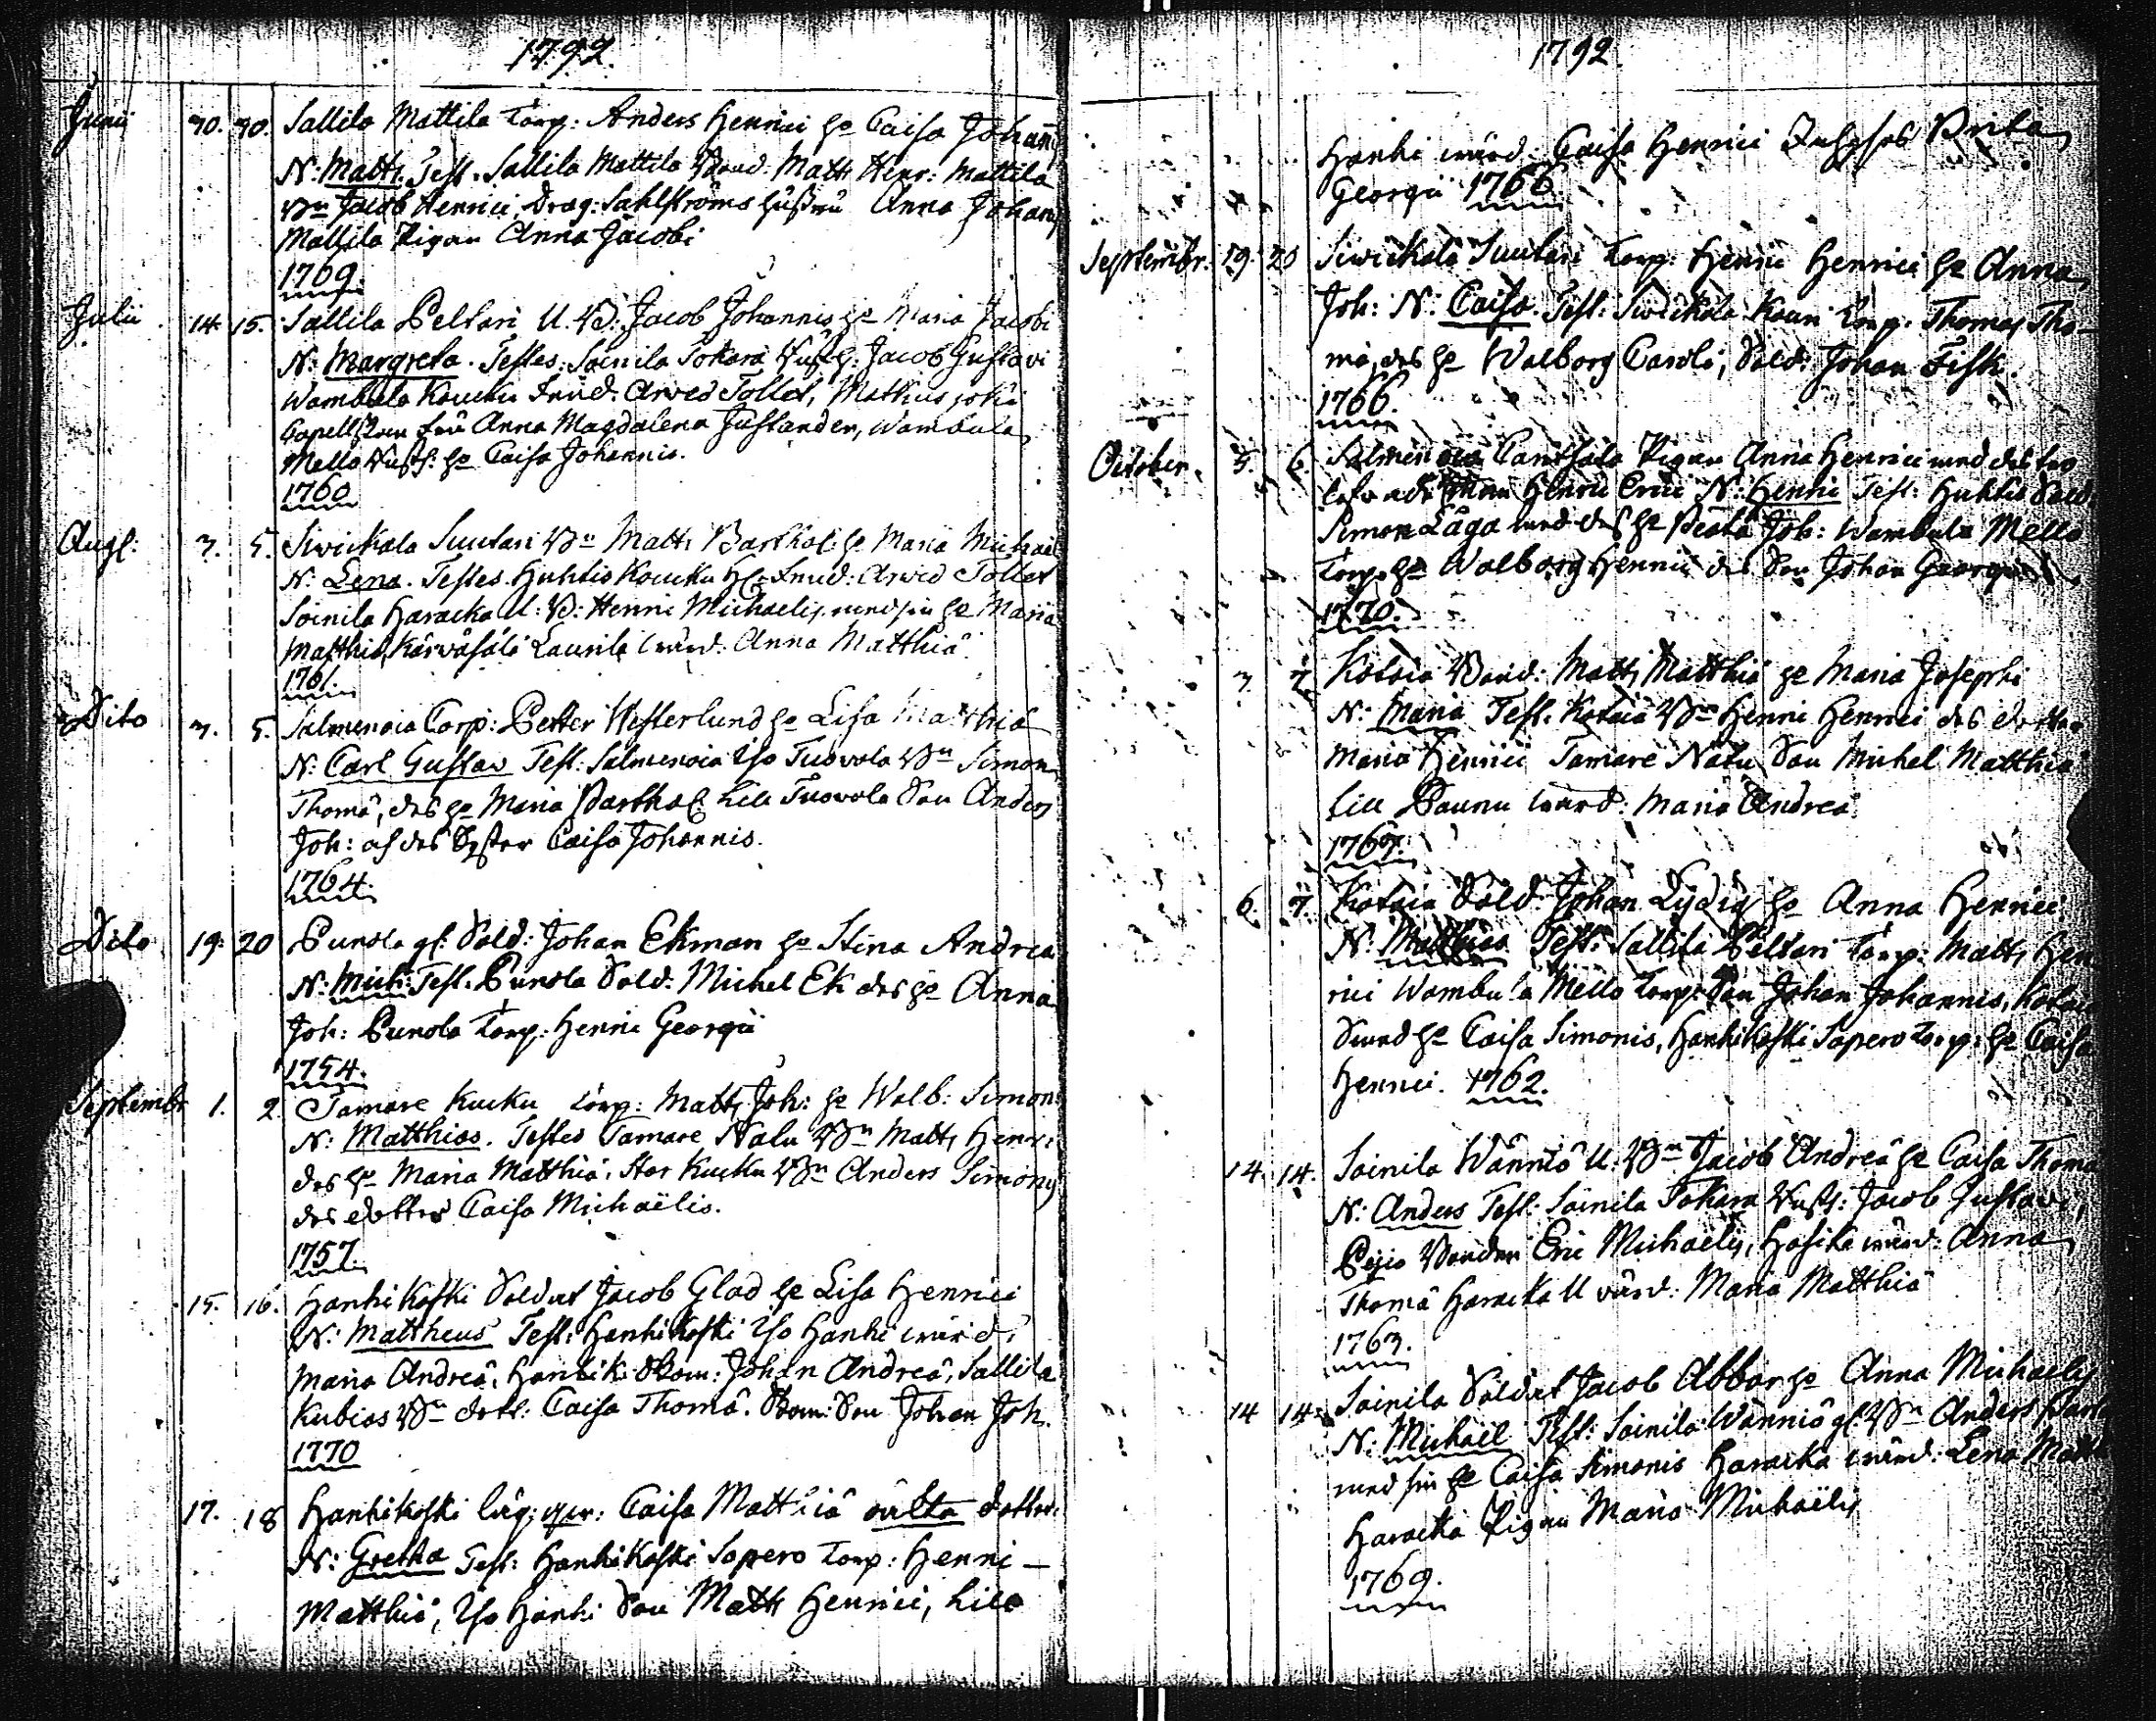 1792.
Junii 30. 30. Sallila Mattila Torp: Anders Henrici h:o Caisa Johan:
N: Matts. Test. Sallila Mattila Bond: Matts Henr: Mattila
B:n Jacob Henrici, Drag: Sahlströms hustru Anna Johan
Mattila Pigan Anna Jacobi
1769.
Julii 14. 15. Sallila Peltari U. B: Jacob Johannis h:o Maria Jacobi
N: Margreta. Testes: Soinila Tokara Rusth: Jacob Gustavi
Wambula Koucku Arved Tollet, Mathus joki
Capellskan fru Anna Magdalena Justander, Wambula
Mello Rusth: h:o Caisa Johannis.
1760
Augt: 3. 5. Siwickala Suutari B:n Matts Barthol: h:o Maria Michael
N: Lena. Testes. Huhtis Koucku Arved Tollet
Soinila Haracka U: B: Henric Michaelis med sin h:o Maria
Matthiæ, Kärväsälä Laurila wärd: Anna Matthiä.
1761.
Dito 3. 5. Salmenoia Corp: Petter Westerlund h:o Lisa Matthiä
N: Carl Gustav Test: Salmenoia Iso Tuovola B:n Simon
Thomä, des h:o Maria Barthol: Lill Tuovola Son Anders
Joh: och des Syster Caisa Johannis.
1764.
Dito 19. 20 Punola gl: Sold: Johan Ekman h:o Stina Andreä
N: Mich: Test: Punola Sold: Michel Ek des h:o Anna
Joh: Punola Torp: Henric Georgii
1754.
Septembr 1. 2. Tamare Kucku Torp: Matts Joh: h:o Walb: Simon:
N: Matthias. Testes Tamare Nalu B:n Matts Henr:
des h:o Maria Matthiä. Stor Kucku B:n Anders Simonis
des dotter Caisa Michaëlis.
1757.
15. 16. Hanhikoski Soldat Jacob Glad h:o Lisa Henrici
N: Mattheus Test: Hanhikoski Iso Hanhi wärd:
Maria Andreä, Hanhik: Johan Andreä, Sallila
Kubias B:n dott: Caisa Thomä. Son Johan Joh.
1770
17. 18 Hanhikoski Caisa Matthiä oälta dotter:
N: Gretha Test: Hanhikoski Sopero Torp: Henric
Matthiä, Iso Hanhi Son Matts Henrici, Lill
1792.
Hanhi wärd: Caisa Henrici Inhyses Brita
Georgii 1766
Septembr. 19. 20 Siwickala Suutari Torp: Henric Henrici h:o Anna
Joh: N: Caisa. Test: Siwickala Kouri Torp: Thomas Tho-
mä, des h:o Walborg Caroli, Sold: Johan Fisk.
1766.
October. 5. 6. Salmenoia Pigan Anna Henrici med des
Henric Eric N: Henric Test: Huhtis Sold:
Simon Låga med des h:o Beata Joh: Wambula Mello
Torp: h:o Walborg Henrici des Son Johan Georgii
1770.
3. 7. Kotoia Bond: Matts Matthiä h:o Maria Josephi
N: Maria Test: Kotoia B:n Henric Henrici des dotter
Maria Henrici Tamare Nalu Son Michel Matthiä
Lill Paunu wärd: Maria Andreä.
1767.
6. 7. Kotoia Sold: Johan Lydig h:o Anna Henrici
N: Matthias Test: Sallila Peltari Torp: Matts Hen
rici Wambula Mello Torp: Son Johan Johannis,
h:o Caisa Simonis, Hanhikoski Sopero Torp: h:o Caisa
Henrici. 1762.
14. 14. Soinila Wänniö U: B:n Jacob Andreä h:o Caisa Thomä
N: Anders Test: Soinila Tokara Rusth: Jacob Gustavi,
Peijo Bonden Eric Michaëlis, Hosika wärd: Anna
Thomä Haracka U wärd: Maria Matthiä
1763.
14 14. Soinila Soldat Jacob Abbor h:o Anna Michaelis
N: Michaël Test: Soinila Wänniö gl: B:n Anders
med sin h:o Caisa Simonis Haracka wärd: Lena Matth
Haracka Pigan Maria Michaëlis
1769.